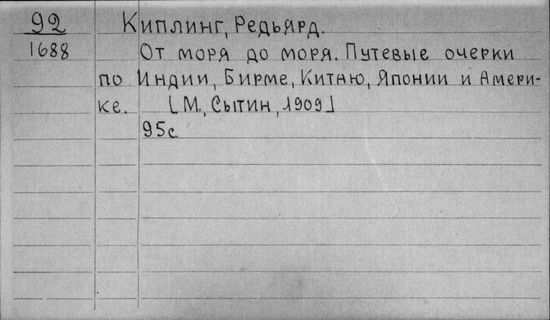 92 Киплинг, Редьярд.
1688 От моря до моря. Путевые очерки
по Индии, Бирме, Китаю, Японии и Амери-
ке. [М., Сытин, 1909]
95с.